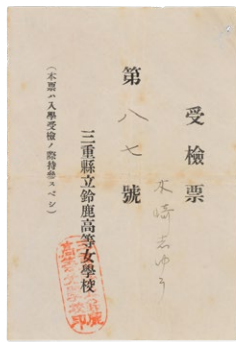 受檢票
第八七號
三重縣立鈴鹿高等女學校
（本票ハ入學受檢ノ際持參スベシ）